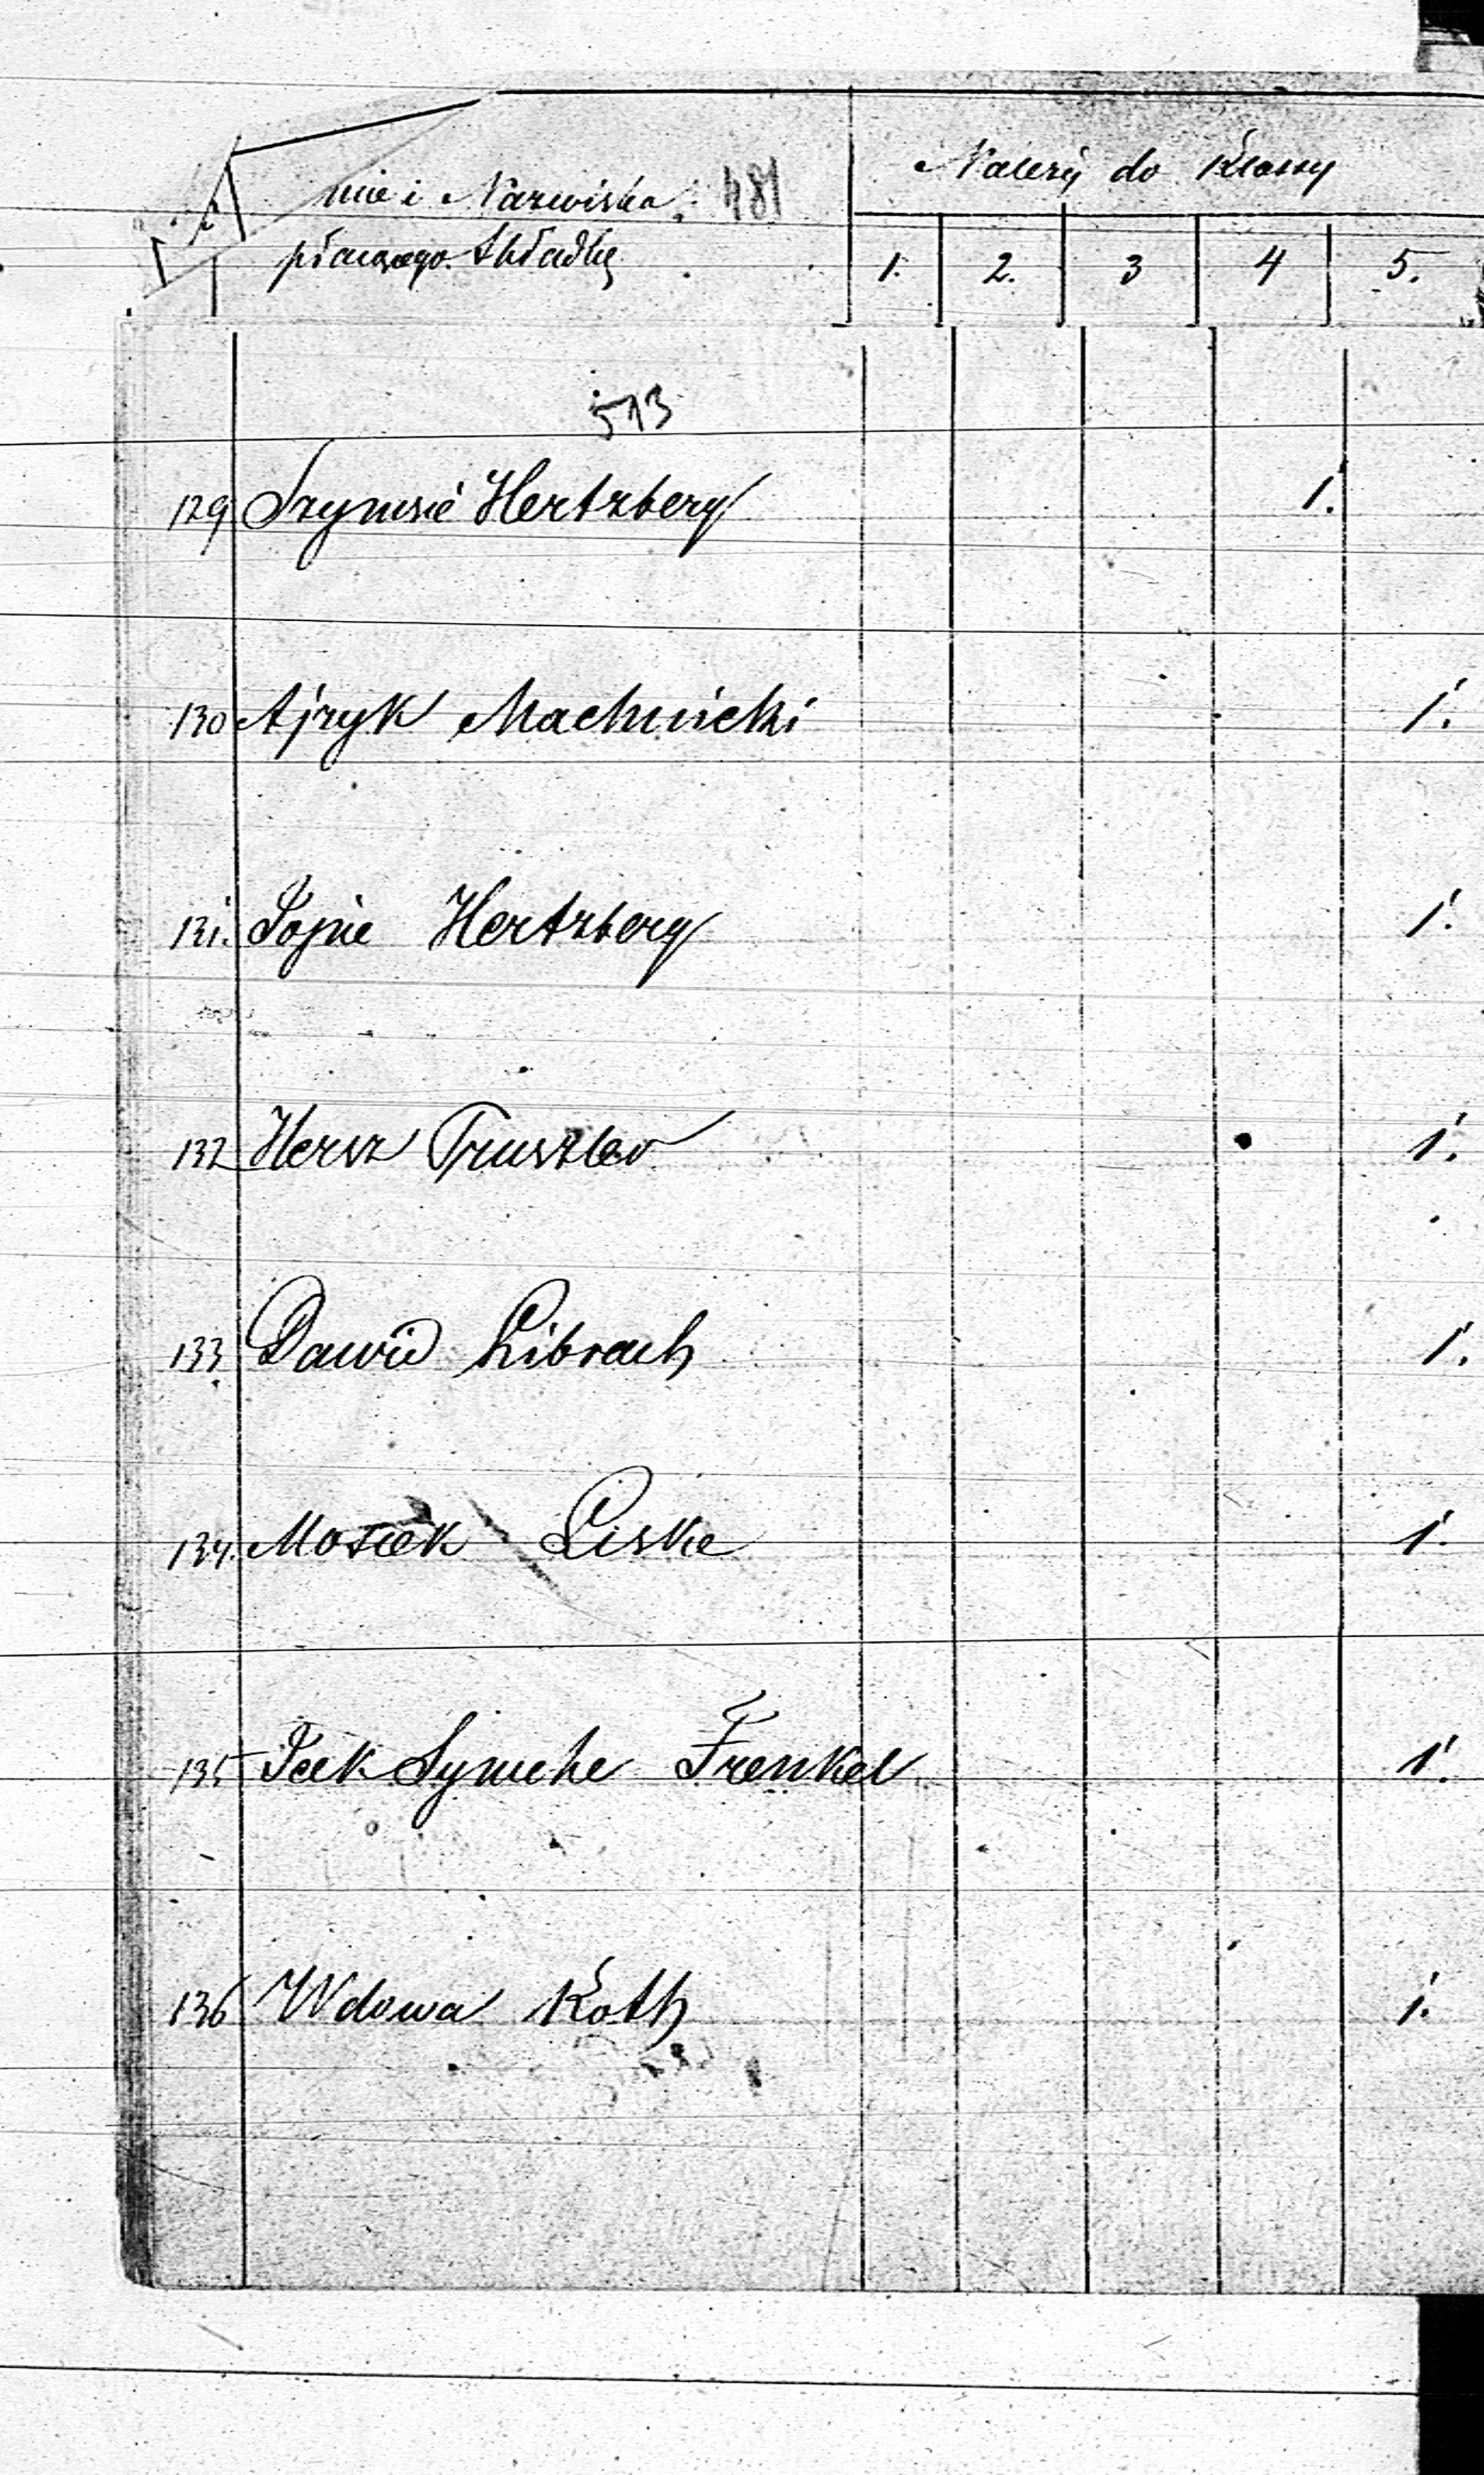 mie i Nazwisko 481 Należy do Klassy
płacącego Składkę 1. 2. 3 4 5.
513
129 Szymsie Hertzberg 1.
130 Ajzyk Machnicki 1.
131. Hertzberg 1.
132 Hersz 1.
133 Dawid Librach 1.
134. Mosiek Liske 1.
135 Icek Symche Frenkel 1.
136 Wdowa Roth 1.